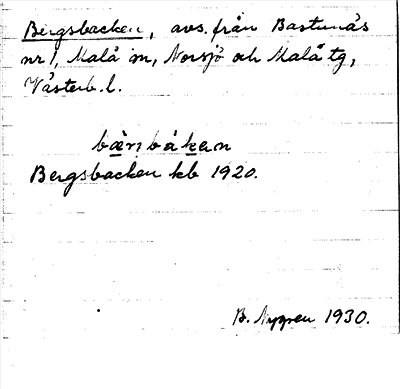 Bergsbacken, avs. från Bastunäs
nr 1, Malå sn, Norsjö och Malå tg,
Västerb. l.
bær̀ṣbáken
Bergsbacken kb 1920.
B. Nygren 1930.